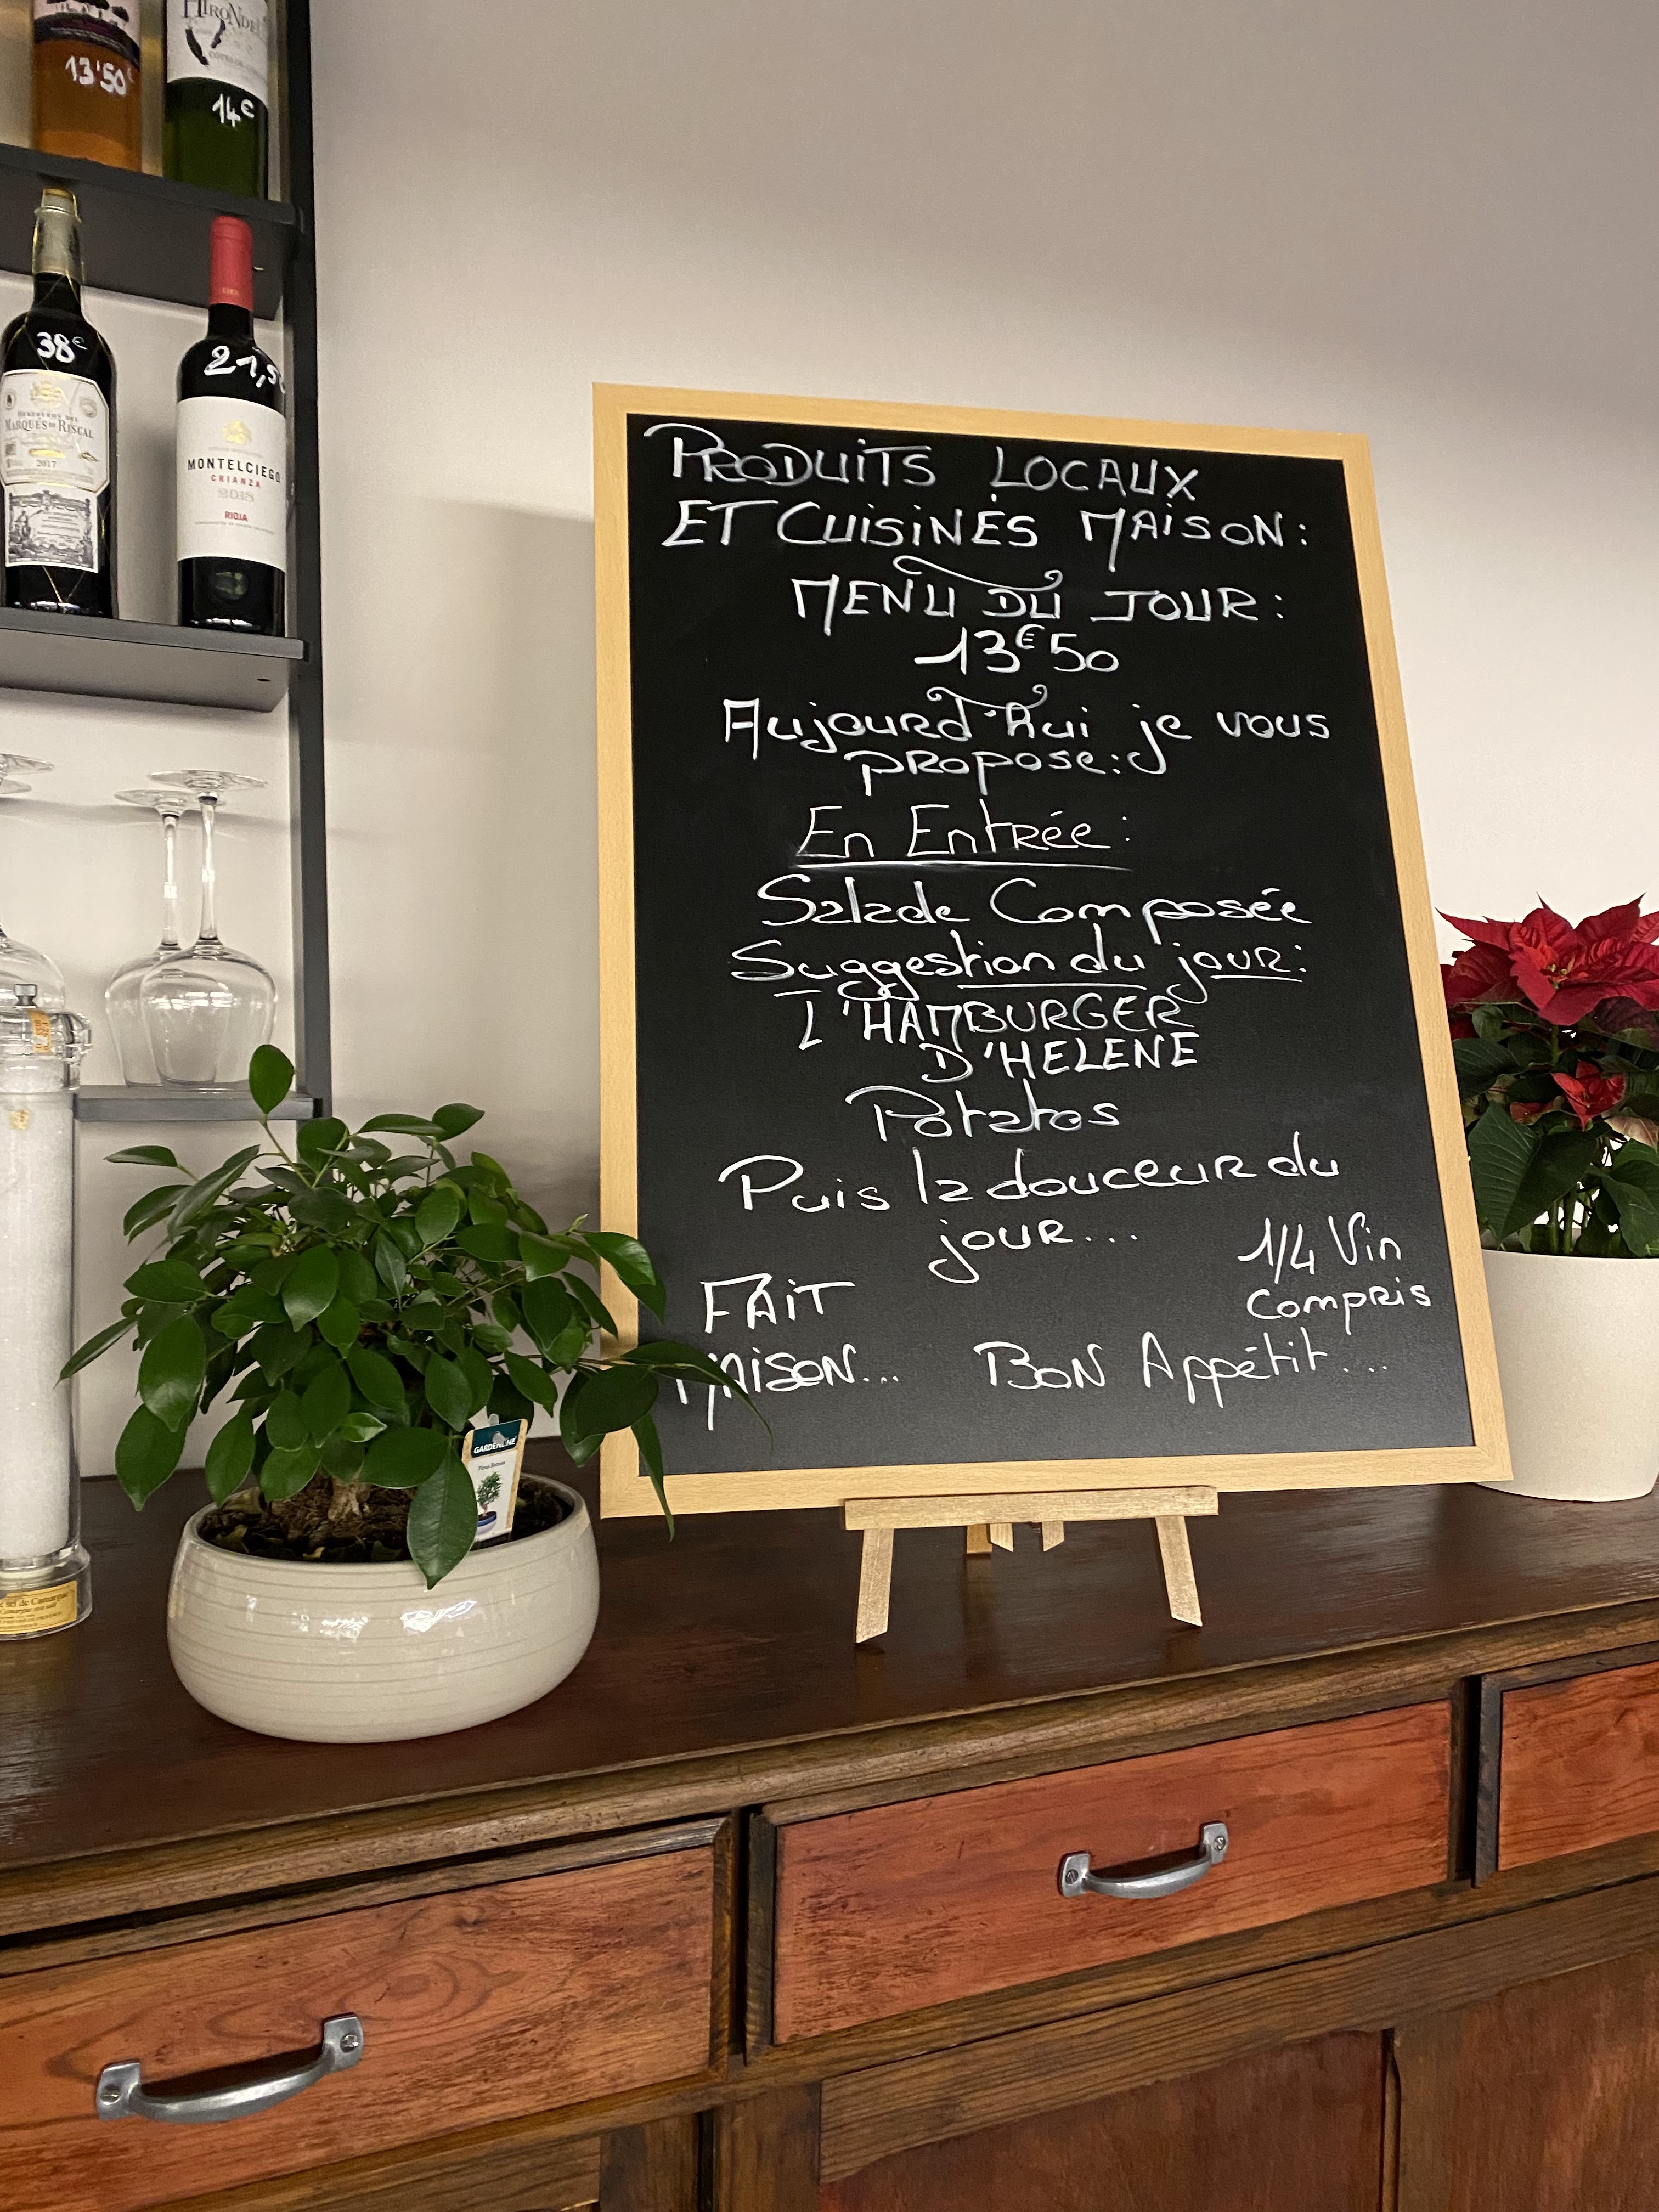 HIRONDEL
13'50€
14€
38€
21,5
MARQUES DE RISCAL
2017
MONTELCIEGO
CRIANZA
2018
RIOJA
PRODUITS LOCAUX
ET CUISINÉS MAISON:
MENU DU JOUR:
13€50
Aujourd'hui je vous
propose:
En Entrée:
Salade Composée
Suggestion du jour:
L'HAMBURGER
D'HELENE
Potatos
Puis la douceur du
jour...
1/4 Vin
Compris
FAIT
MAISON... BON Appétit...
GARDENLINE
sel de Camargue